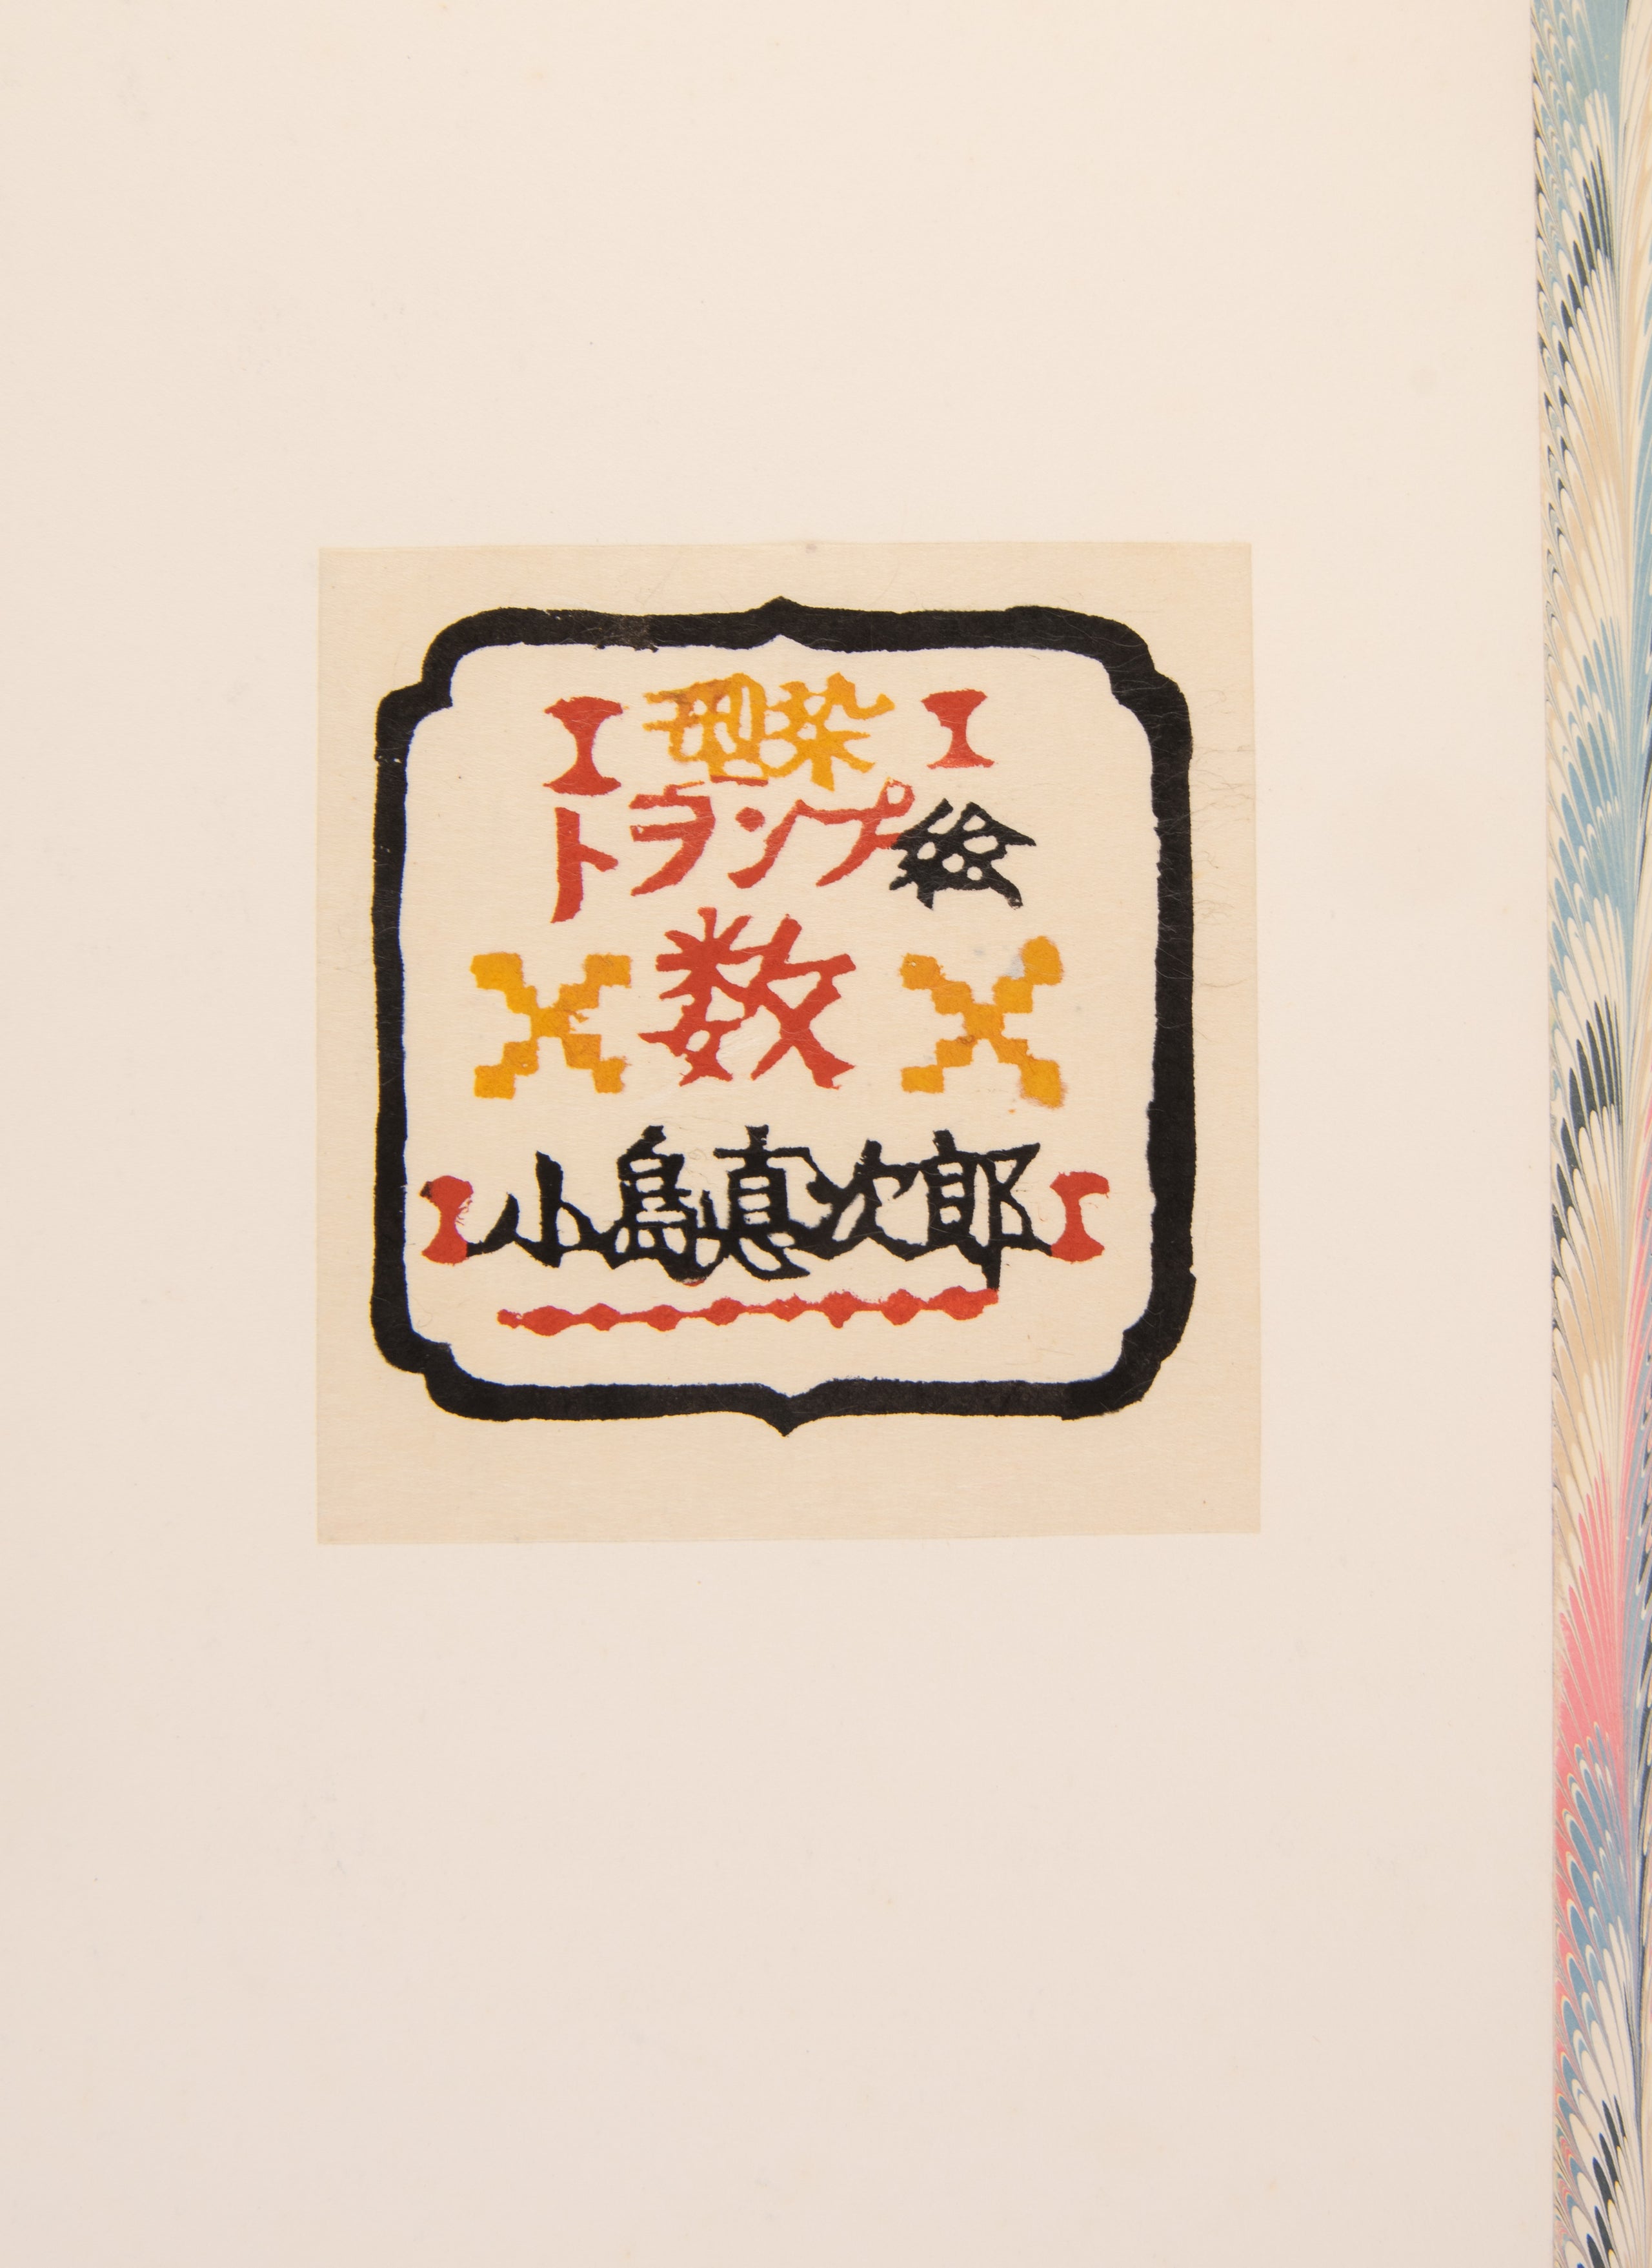 型染
トランプ絵
数
小島悳次郎